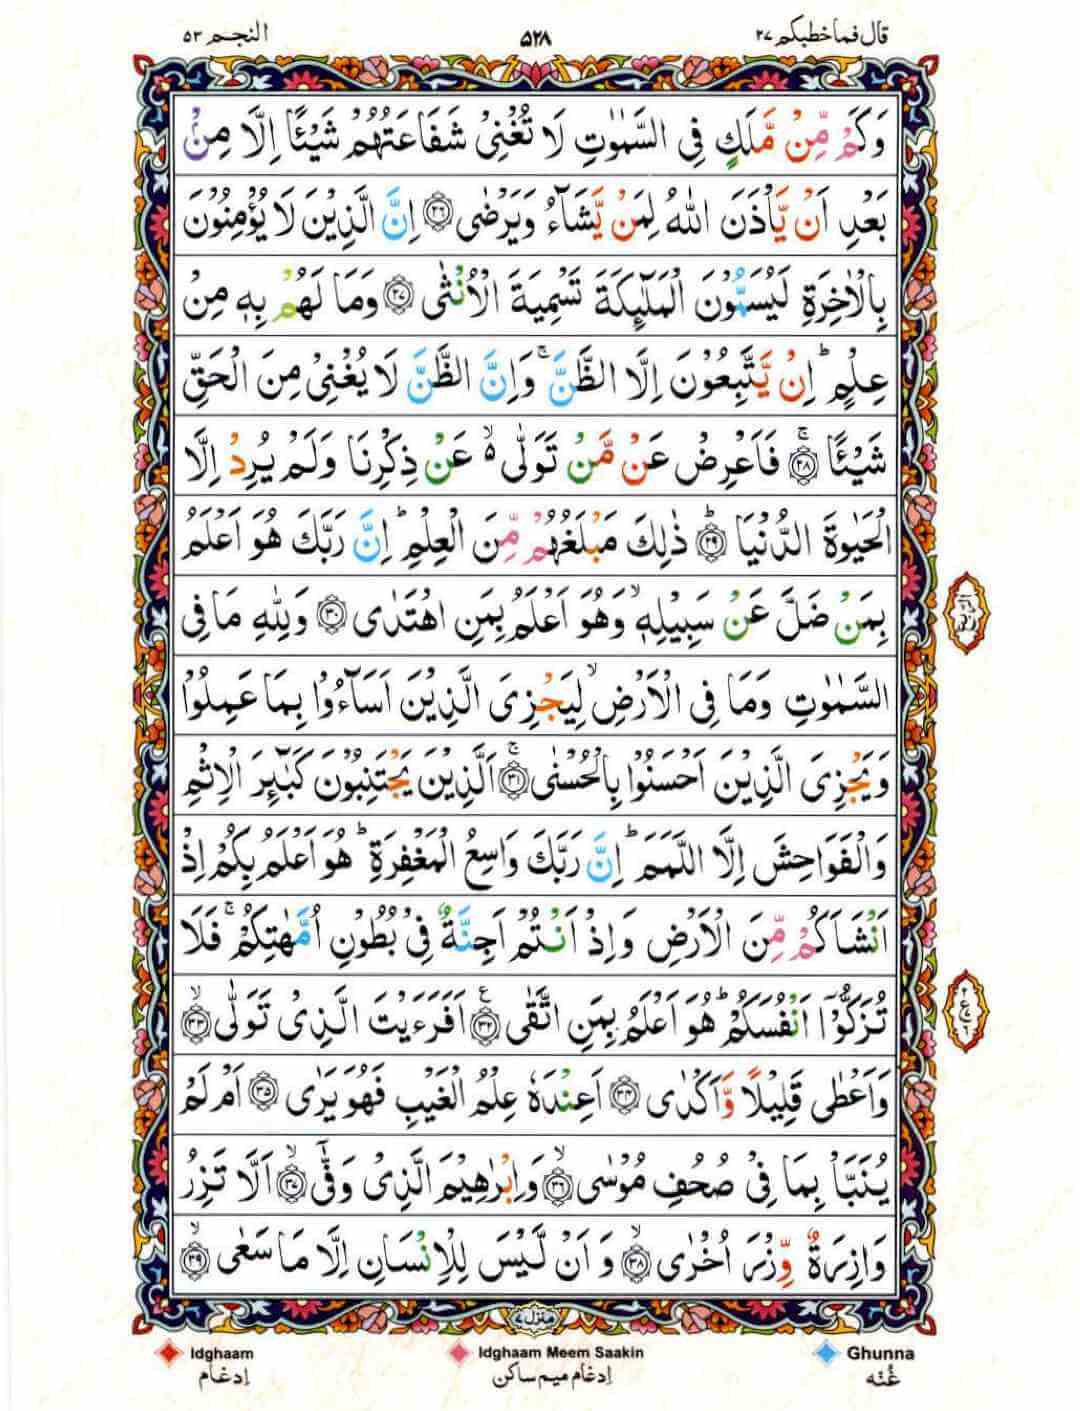 قال فما خطبكم ٢٧
٥٢٨
النجم ٥٣
وَكَمْ مِّنْ مَّلَكٍ فِى السَّمٰوٰتِ لَا تُغْنِىْ شَفَاعَتُهُمْ شَيْـًٔا اِلَّا مِنْۢ
بَعْدِ اَنْ يَّاْذَنَ اللّٰهُ لِمَنْ يَّشَآءُ وَيَرْضٰى ۝٢٦ اِنَّ الَّذِيْنَ لَا يُؤْمِنُوْنَ
بِالْاٰخِرَةِ لَيُسَمُّوْنَ الْمَلٰٓئِكَةَ تَسْمِيَةَ الْاُنْثٰى ۝٢٧ وَمَا لَهُمْ بِهٖ مِنْ
عِلْمٍ ؕ اِنْ يَّتَّبِعُوْنَ اِلَّا الظَّنَّ ۚ وَاِنَّ الظَّنَّ لَا يُغْنِىْ مِنَ الْحَقِّ
شَيْـًٔا ۝٢٨ ۚ فَاَعْرِضْ عَنْ مَّنْ تَوَلّٰى ۙ۬ عَنْ ذِكْرِنَا وَلَمْ يُرِدْ اِلَّا
الْحَيٰوةَ الدُّنْيَا ۝٢٩ ؕ ذٰلِكَ مَبْلَغُهُمْ مِّنَ الْعِلْمِ ؕ اِنَّ رَبَّكَ هُوَ اَعْلَمُ
بِمَنْ ضَلَّ عَنْ سَبِيْلِهٖ ۙ وَهُوَ اَعْلَمُ بِمَنِ اهْتَدٰى ۝٣٠ وَلِلّٰهِ مَا فِى
السَّمٰوٰتِ وَمَا فِى الْاَرْضِ ۙ لِيَجْزِىَ الَّذِيْنَ اَسَآءُوْا بِمَا عَمِلُوْا
وَيَجْزِىَ الَّذِيْنَ اَحْسَنُوْا بِالْحُسْنٰى ۝٣١ ۚ اَلَّذِيْنَ يَجْتَنِبُوْنَ كَبٰٓئِرَ الْاِثْمِ
وَالْفَوَاحِشَ اِلَّا اللَّمَمَ ؕ اِنَّ رَبَّكَ وَاسِعُ الْمَغْفِرَةِ ؕ هُوَ اَعْلَمُ بِكُمْ اِذْ
اَنْشَاَكُمْ مِّنَ الْاَرْضِ وَاِذْ اَنْتُمْ اَجِنَّةٌ فِىْ بُطُوْنِ اُمَّهٰتِكُمْ ۚ فَلَا
تُزَكُّوْۤا اَنْفُسَكُمْ ؕ هُوَ اَعْلَمُ بِمَنِ اتَّقٰى ۝٣٢ ع اَفَرَءَيْتَ الَّذِىْ تَوَلّٰى ۝٣٣ ۙ
وَاَعْطٰى قَلِيْلًا وَّاَكْدٰى ۝٣٤ اَعِنْدَهٗ عِلْمُ الْغَيْبِ فَهُوَ يَرٰى ۝٣٥ اَمْ لَمْ
يُنَبَّاْ بِمَا فِىْ صُحُفِ مُوْسٰى ۝٣٦ ۙ وَاِبْرٰهِيْمَ الَّذِىْ وَفّٰٓى ۝٣٧ ۙ اَلَّا تَزِرُ
وَازِرَةٌ وِّزْرَ اُخْرٰى ۝٣٨ ۙ وَاَنْ لَّيْسَ لِلْاِنْسَانِ اِلَّا مَا سَعٰى ۝٣٩ ۙ
منزل ٧
Idghaam Idghaam Meem Saakin Ghunna
إدغام إدغام ميم ساكن غُنّه